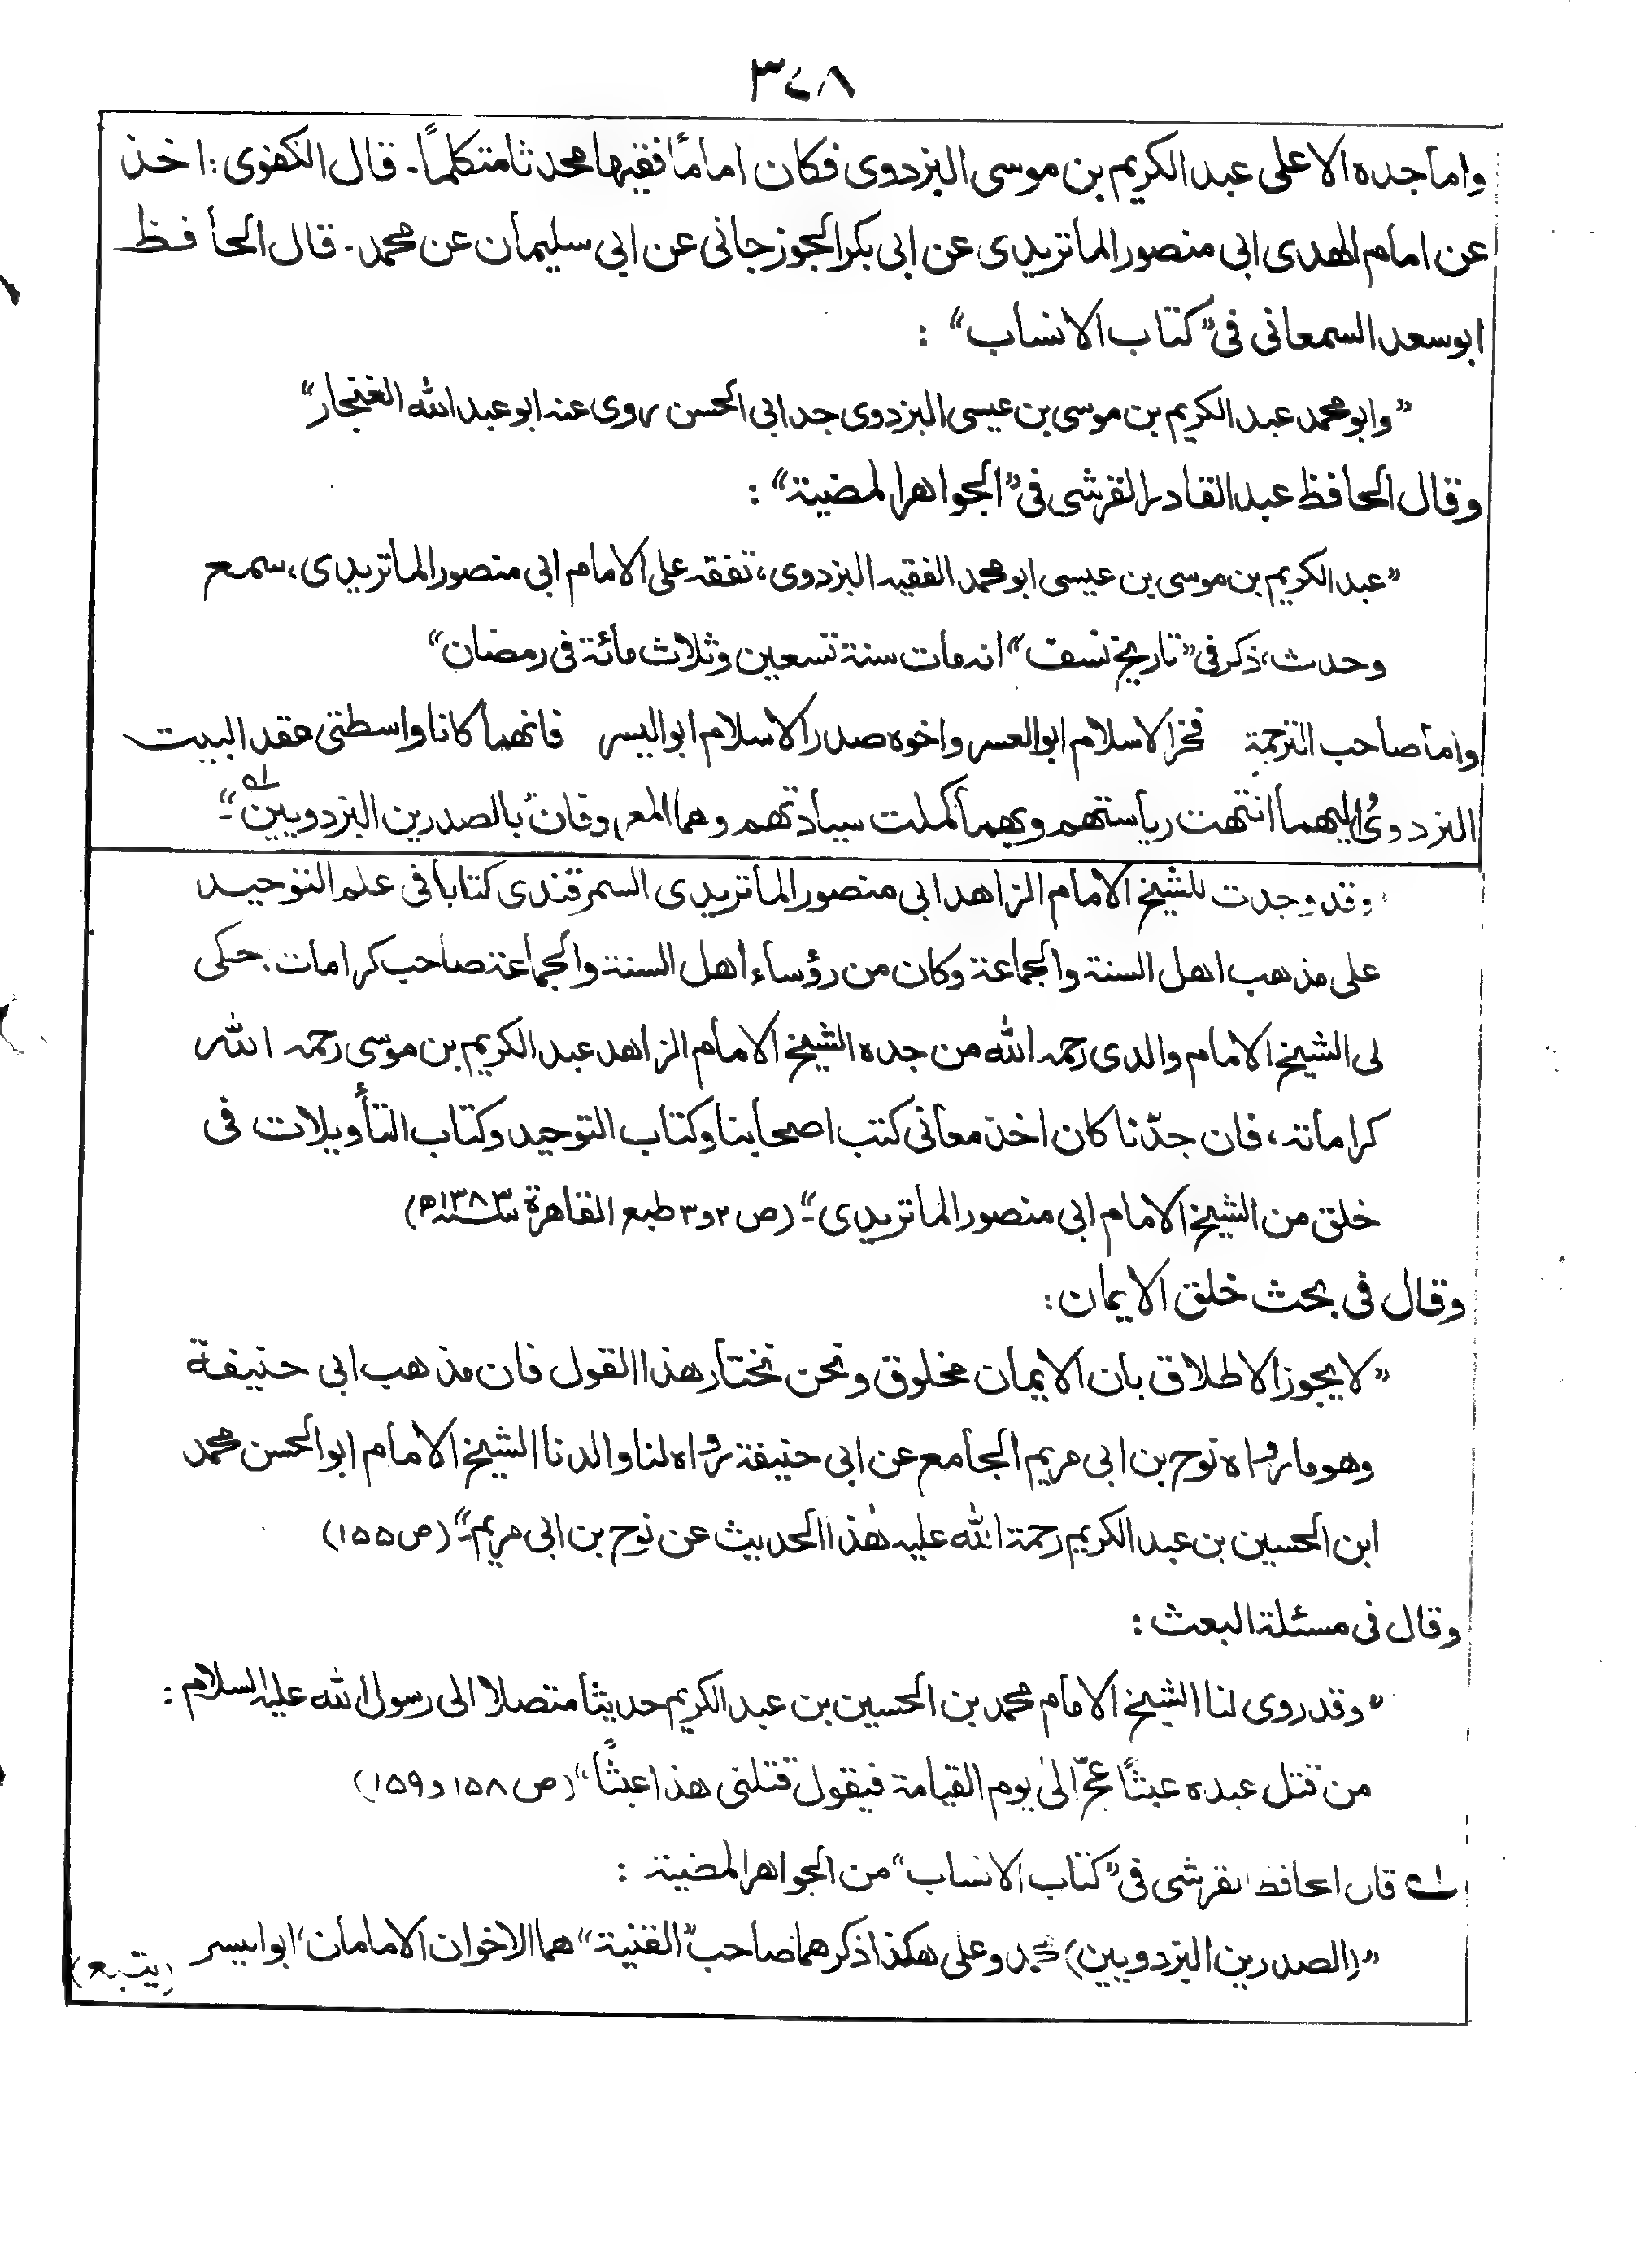 ٣٤٨
واما جده الاعلى عبد الكريم بن موسى البزدوى فكان اماماً فقيها محدثا متكلماً. قال الكفوى: اخذ
عن امام الهدى ابى منصور الماتريدى عن ابى بكر الجوزجانى عن ابى سليمان عن محمد. قال الحافظ
ابو سعد السمعانى فى "كتاب الانساب" :
"وابو محمد عبد الكريم بن موسى بن عيسى البزدوى جد ابى الحسن روى عنه ابو عبد الله الغنجار"
وقال الحافظ عبد القادر القرشى فى "الجواهر المضية" :
"عبد الكريم بن موسى بن عيسى ابو محمد الفقيه البزدوى، تفقه على الامام ابى منصور الماتريدى، سمع
وحدث، ذكر فى "تاريخ نسف" انه مات سنة تسعين وثلاث مائة فى رمضان"
واما صاحب الترجمة فخر الاسلام ابو العسر واخوه صدر الاسلام ابو اليسر فانهما كانا واسطتى عقد البيت
البزدوىُ اليهما انتهت رياستهم وبهما كملت سيادتهم وهما المعروفان "بالصدرين البزدويين"۔ له
وقد وجدت للشيخ الامام الزاهد ابى منصور الماتريدى السمرقندى كتابا فى علم التوحيد
على مذهب اهل السنة والجماعة وكان من رؤساء اهل السنة والجماعة صاحب كرامات. حكى
لى الشيخ الامام والدى رحمه الله من جده الشيخ الامام الزاهد عبد الكريم بن موسى رحمه الله
كراماته، فان جدّنا كان اخذ معانى كتب اصحابنا وكتاب التوحيد وكتاب التأويلات فى
خلق من الشيخ الامام ابى منصور الماتريدى"۔ (ص ٢ و ٣ طبع القاهرة سنة ١٣٨٣ه)
وقال فى بحث خلق الايمان:
"لا يجوز الاطلاق بان الايمان مخلوق ونحن نختار هذا القول فان مذهب ابى حنيفة
وهو ما رواه نوح بن ابى مريم الجامع عن ابى حنيفة رواه لنا والدنا الشيخ الامام ابو الحسن محمد
ابن الحسين بن عبد الكريم رحمة الله عليه هٰذا الحديث عن نوح بن ابى مريم"۔ (ص ١٥٥)
وقال فى مسئلة البعث :
"وقد روى لنا الشيخ الامام محمد بن الحسين بن عبد الكريم حديثا متصلا الى رسول الله عليه السلام :
من قتل عبده عبثاً عجّ الىٰ يوم القيامة فيقول قتلنى هذا عبثاً" (ص ١٥٨ و ١٥٩)
له قال الحافظ القرشى فى "كتاب الانساب" من الجواهر المضية :
"(الصدرين البزدويين) وعلى هكذا ذكرهما صاحب "القنية" هما الاخوان الامامان، ابو اليسر
(يتبع)